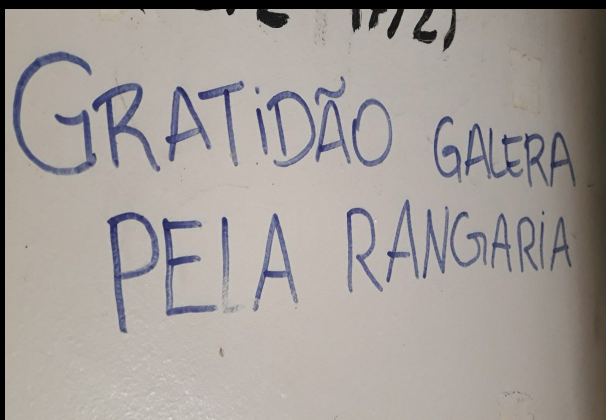 GRATIDÃO GALERA
PELA RANGARIA